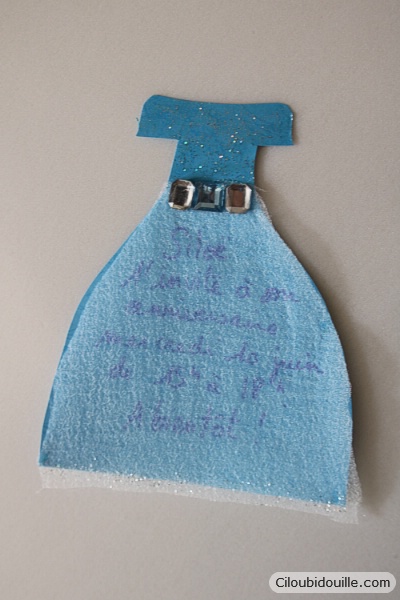 t'invite à son
anniversaire
mercredi 10 juin
de 15h à 18h
A bientôt !
Ciloubidouille.com